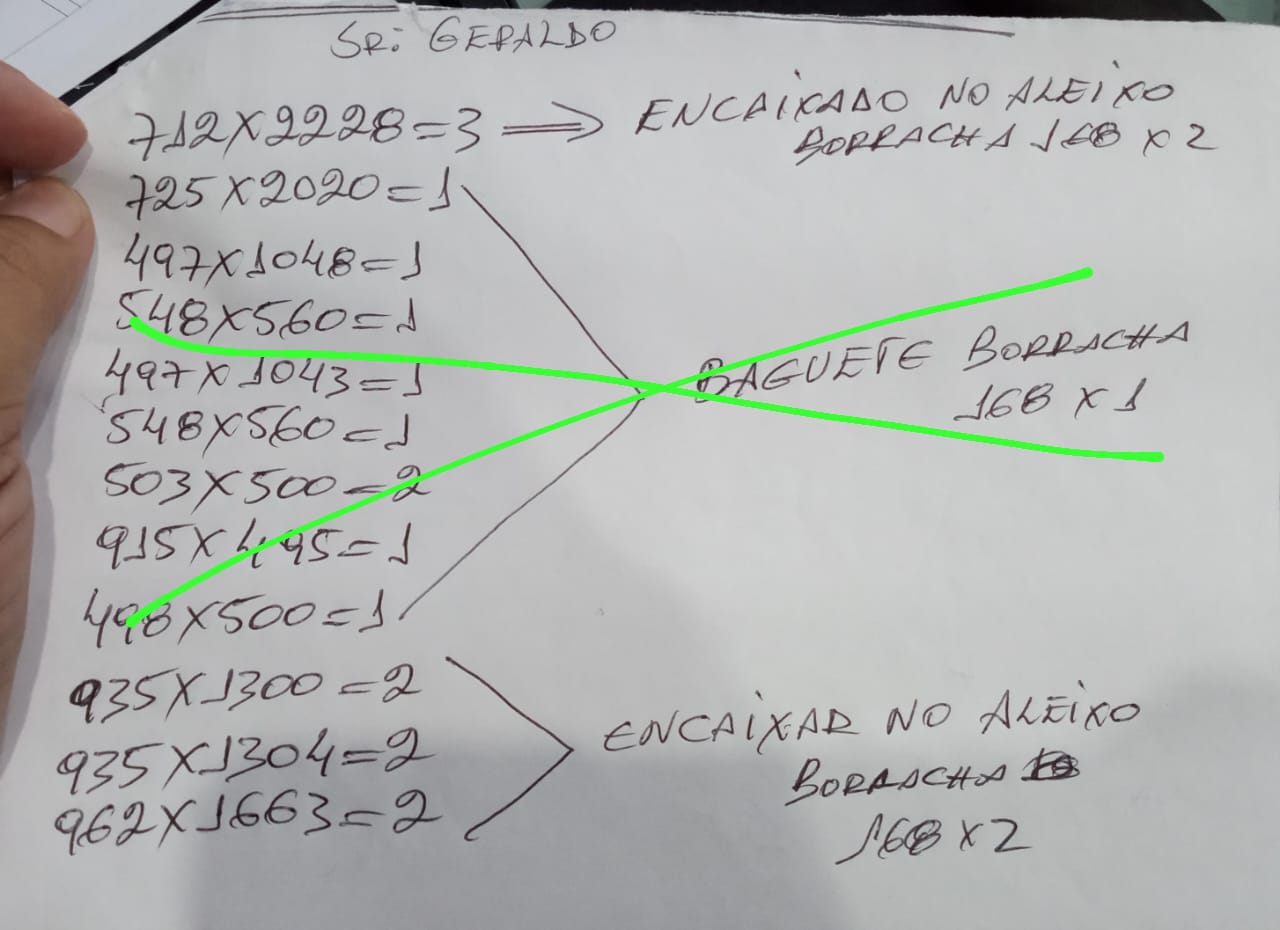 SR: GERALDO
712X2228=3 ⟹ ENCAIXADO NO ALEIXO
BORRACHA 168 X 2
725X2020=1
497X1048=1
548X560=1
497X1043=1
548X560=1
503X500=2
915X495=1
498X500=1
BAGUETE BORRACHA
168 X 1
935X1300=2
935X1304=2
962X1663=2
ENCAIXAR NO ALEIXO
BORRACHA
168 X 2